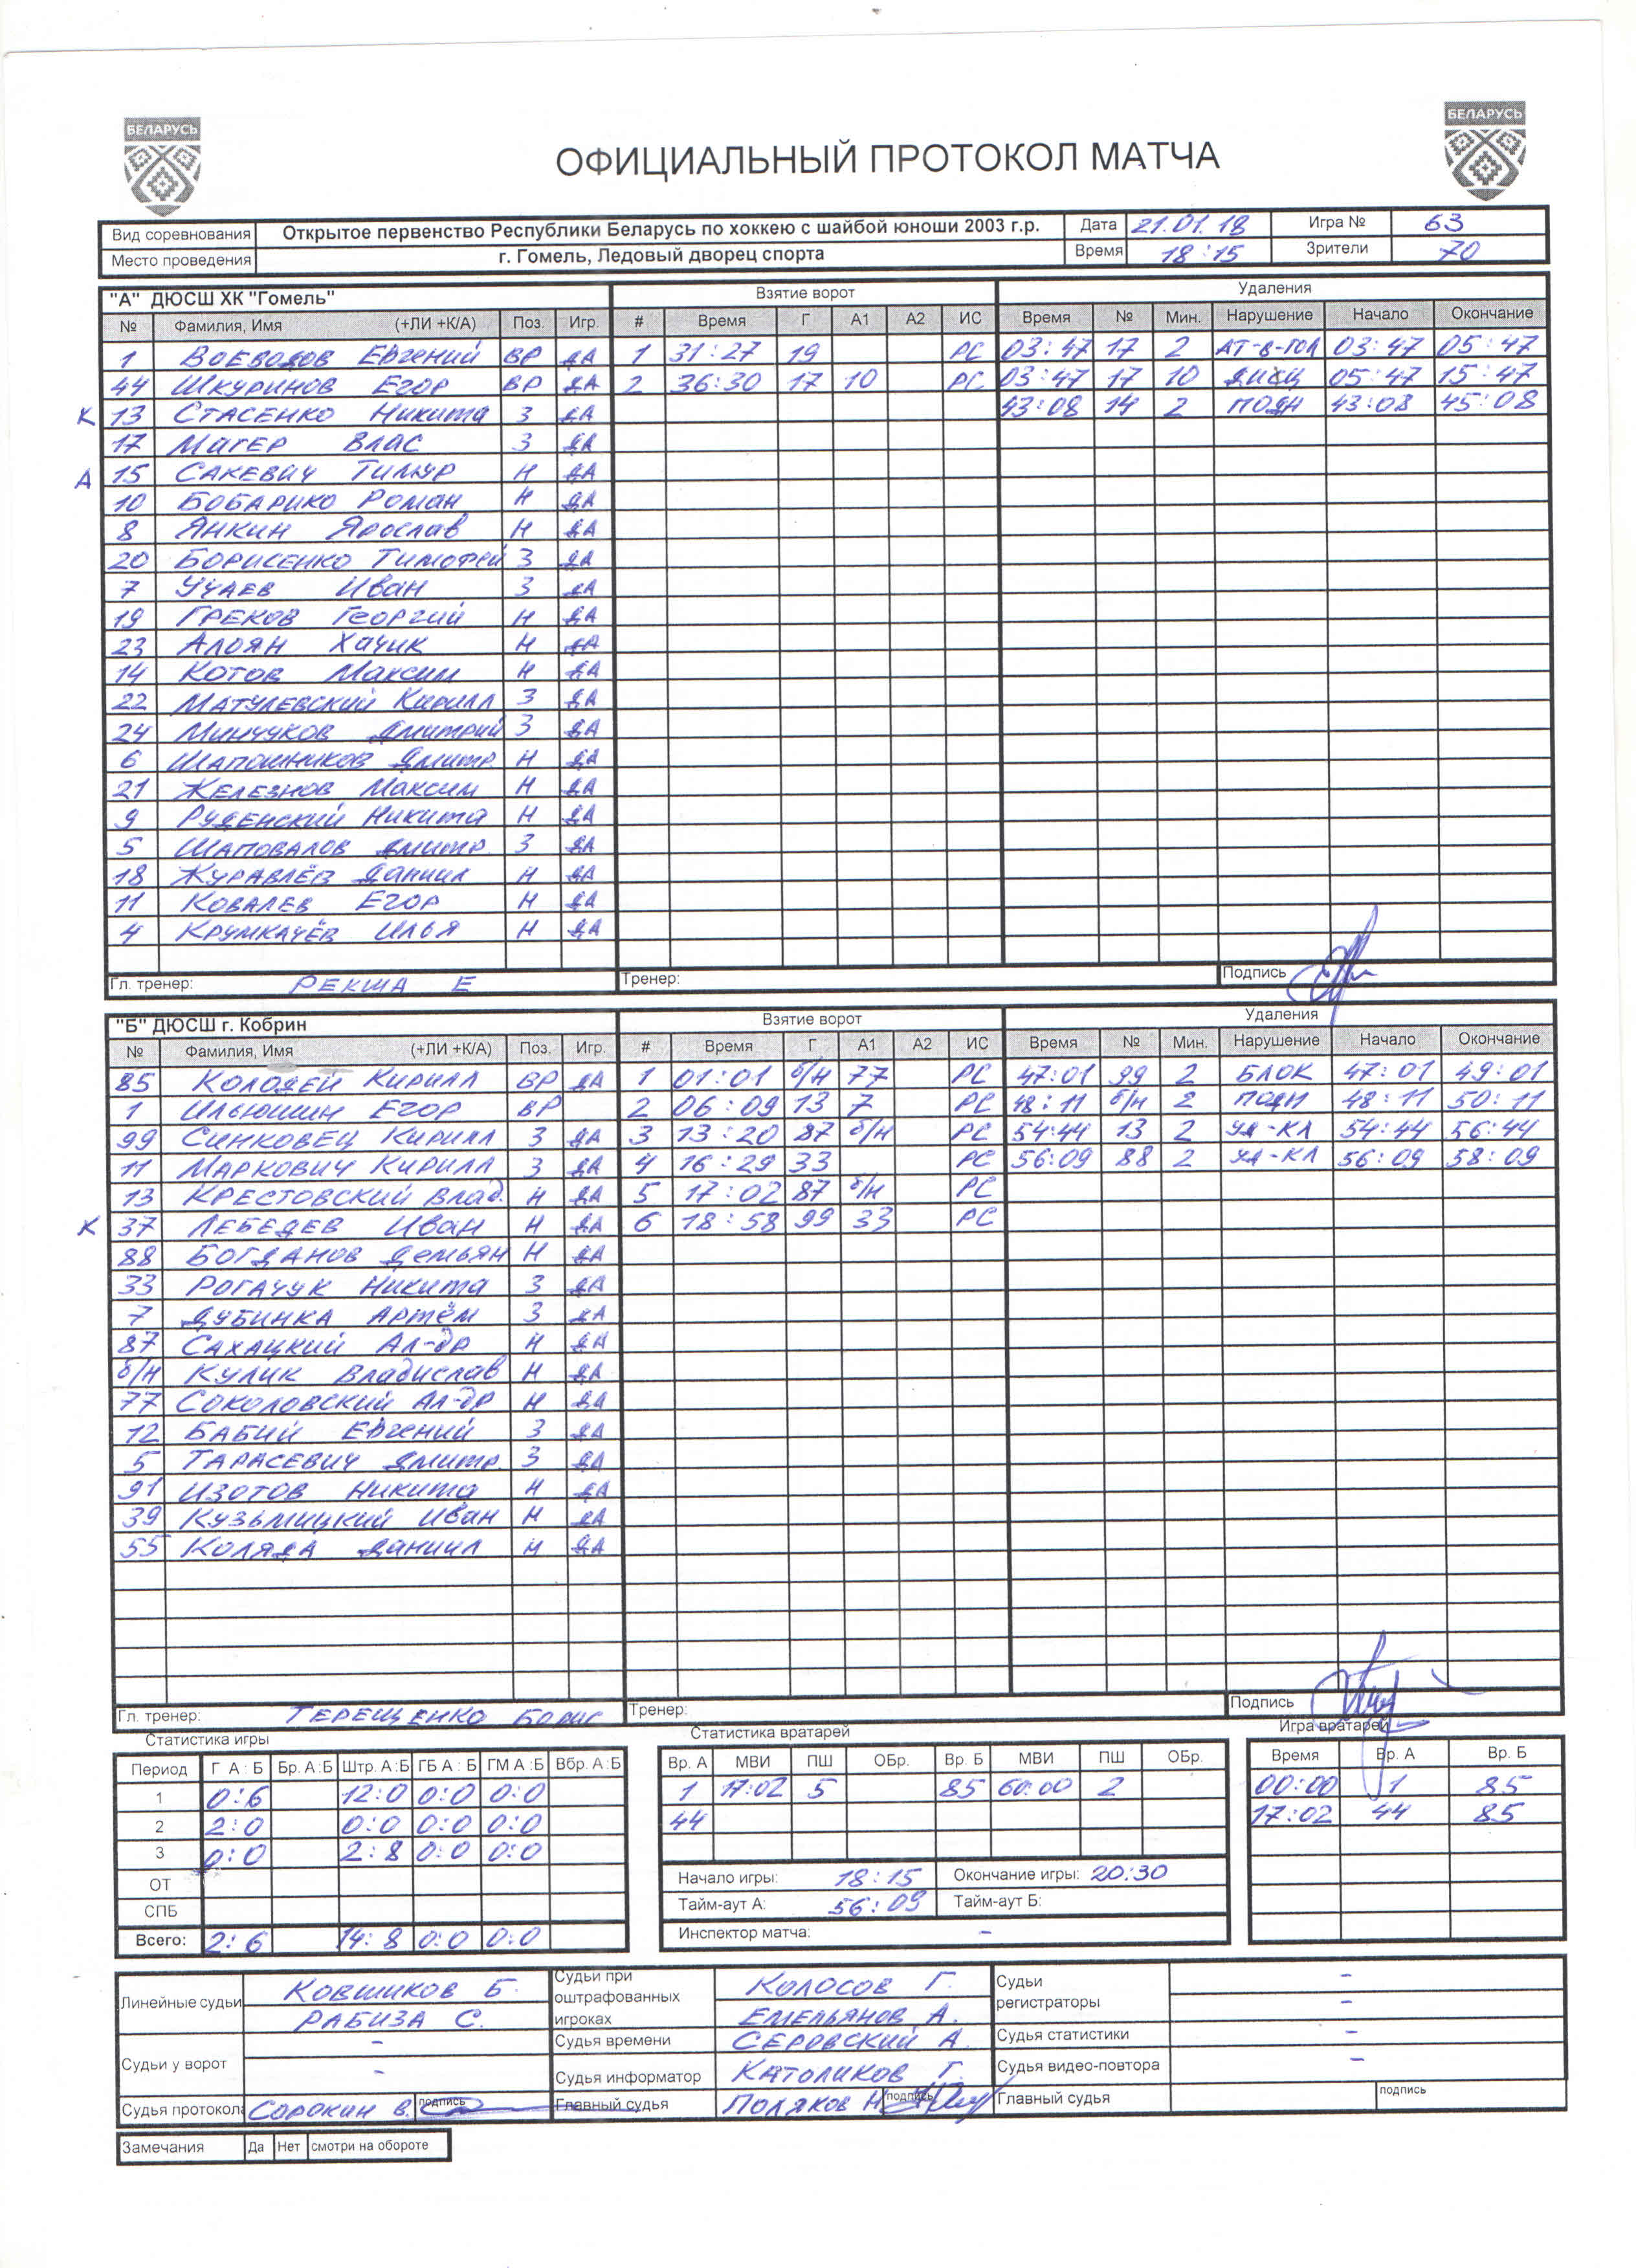 БЕЛАРУСЬ БЕЛАРУСЬ
ОФИЦИАЛЬНЫЙ ПРОТОКОЛ МАТЧА
Вид соревнования Открытое первенство Республики Беларусь по хоккею с шайбой юноши 2003 г.р. Дата 21.01.18 Игра № 63
Место проведения г. Гомель, Ледовый дворец спорта Время 18:15 Зрители 70
"А" ДЮСШ ХК "Гомель" Взятие ворот Удаления
№ Фамилия, Имя (+ЛИ +К/А) Поз. Игр. # Время Г А1 А2 ИС Время № Мин. Нарушение Начало Окончание
1 Воеводов Евгений ВР ДА 1 31:27 19 РС 03:47 17 2 АТ-В-ГОЛ 03:47 05:47
44 Шкуринов Егор ВР ДА 2 36:30 17 10 РС 03:47 17 10 ДИСЦ 05:47 15:47
К 13 Стасенко Никита З ДА 43:08 14 2 ПОДН 43:08 45:08
17 Магер Влас З ДА
А 15 Сакевич Тимур Н ДА
10 Бобарико Роман Н ДА
8 Янкин Ярослав Н ДА
20 Борисенко Тимофей З ДА
7 Учаев Иван З ДА
19 Греков Георгий Н ДА
23 Алоян Хачик Н ДА
14 Котов Максим Н ДА
22 Матулевский Кирилл З ДА
24 Минчуков Дмитрий З ДА
6 Шапошников Дмитр. Н ДА
21 Железнов Максим Н ДА
9 Руденский Никита Н ДА
5 Шаповалов Дмитр. З ДА
18 Журавлёв Даниил Н ДА
11 Ковалев Егор Н ДА
4 Крумкачёв Илья Н ДА
Гл. тренер: Рекша Е Тренер: Подпись
"Б" ДЮСШ г. Кобрин Взятие ворот Удаления
№ Фамилия, Имя (+ЛИ +К/А) Поз. Игр. # Время Г А1 А2 ИС Время № Мин. Нарушение Начало Окончание
85 Колодей Кирилл ВР ДА 1 01:01 б/н 77 РС 47:01 99 2 БЛОК 47:01 49:01
1 Ильюшин Егор ВР 2 06:09 13 7 РС 48:11 б/н 2 ПОДН 48:11 50:11
99 Синковец Кирилл З ДА 3 13:20 87 б/н РС 54:44 13 2 УД-КЛ 54:44 56:44
11 Маркович Кирилл З ДА 4 16:29 33 РС 56:09 88 2 УД-КЛ 56:09 58:09
13 Крестовский Влад. Н ДА 5 17:02 87 б/н РС
К 37 Лебедев Иван Н ДА 6 18:58 99 33 РС
88 Богданов Демьян Н ДА
33 Рогачук Никита З ДА
7 Дубинка Артём З ДА
87 Сахацкий Ал-др Н ДА
б/н Кулик Владислав Н ДА
77 Соколовский Ал-др Н ДА
12 Бабий Евгений З ДА
5 Тарасевич Дмитр. З ДА
91 Изотов Никита Н ДА
39 Кузьмицкий Иван Н ДА
55 Коляда Даниил Н ДА
Гл. тренер: Терещенко Борис Тренер: Подпись
Статистика игры Статистика вратарей Игра вратарей
Период Г А : Б Бр. А :Б Штр. А :Б ГБ А : Б ГМ А :Б Вбр. А :Б Вр. А МВИ ПШ ОБр. Вр. Б МВИ ПШ ОБр. Время Вр. А Вр. Б
1 0:6 12:0 0:0 0:0 1 17:02 5 85 60:00 2 00:00 1 85
2 2:0 0:0 0:0 0:0 44 17:02 44 85
3 0:0 2:8 0:0 0:0
ОТ Начало игры: 18:15 Окончание игры: 20:30
СПБ Тайм-аут А: 56:09 Тайм-аут Б:
Всего: 2:6 14:8 0:0 0:0 Инспектор матча: -
Линейные судьи Ковшиков Б. Судьи при оштрафованных игроках Колосов Г. Судьи регистраторы -
Рабиза С. Емельянов А. -
Судьи у ворот - Судья времени Серовский А. Судья статистики -
- Судья информатор Католиков Г. Судья видео-повтора -
Судья протокола Сорокин В. подпись Главный судья Поляков Н подпись Главный судья подпись
Замечания Да Нет смотри на обороте